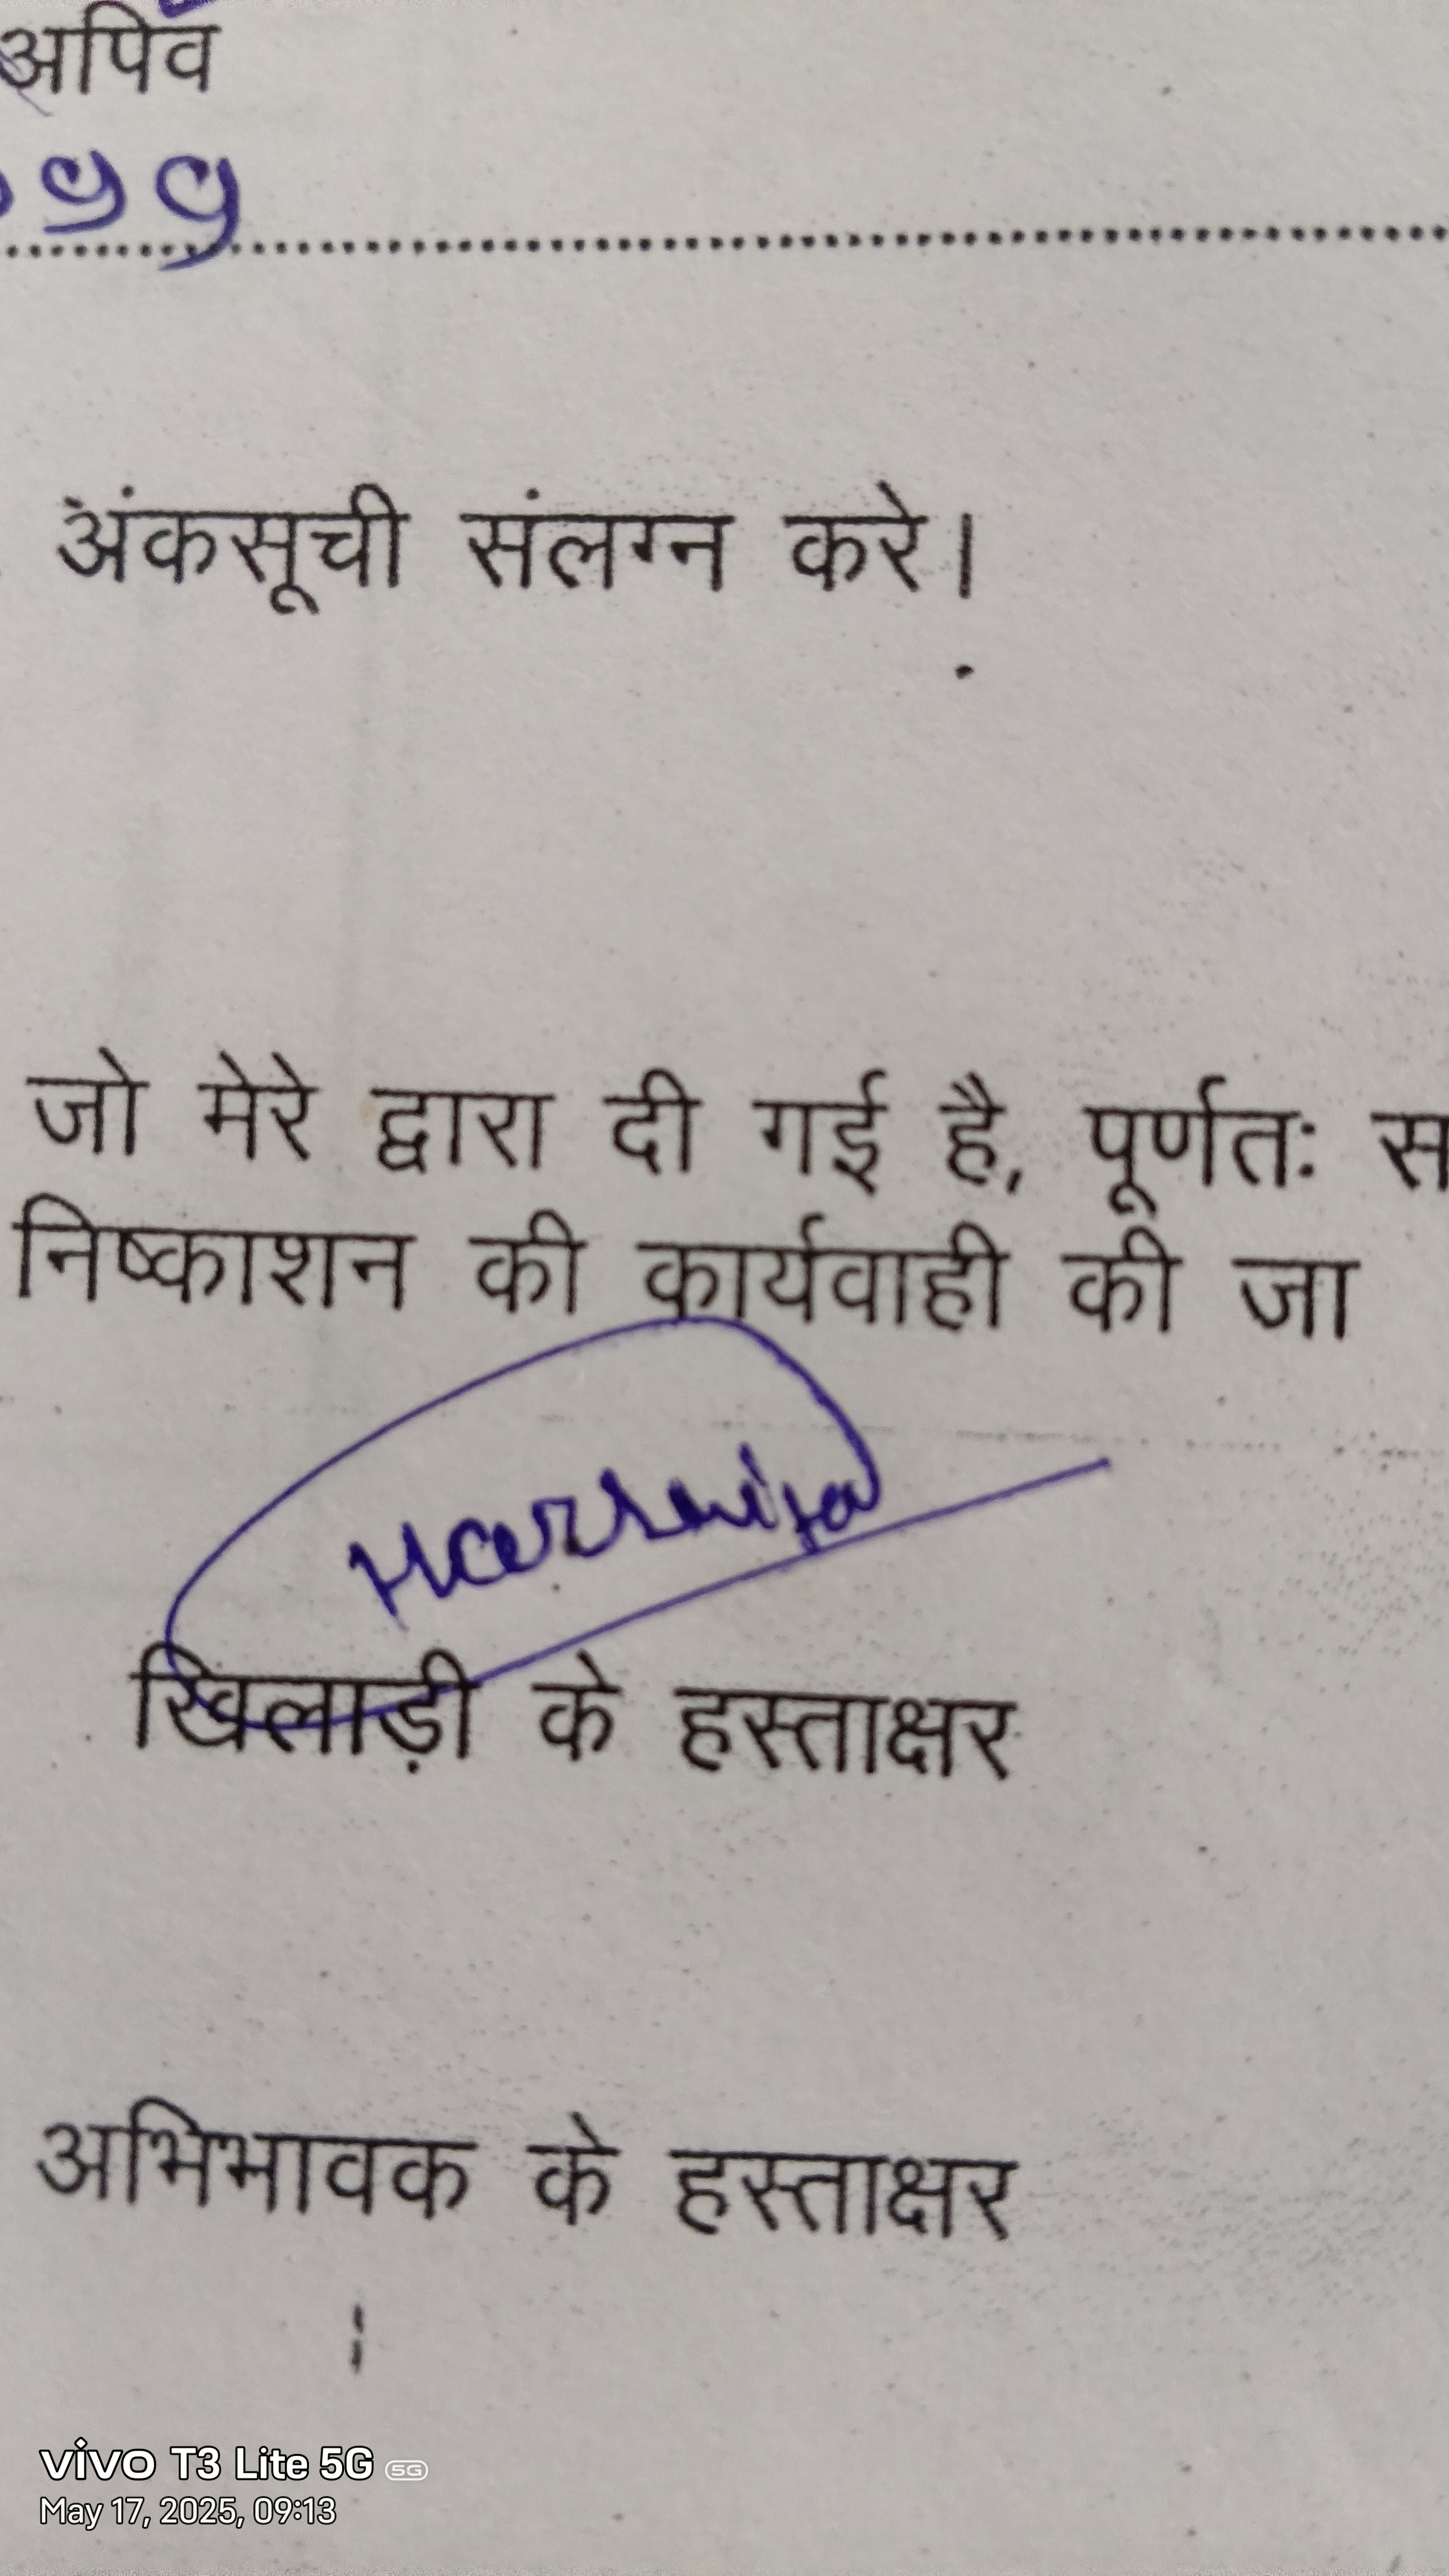 अपिव
99
अंकसूची संलग्न करे।
जो मेरे द्वारा दी गई है, पूर्णतः स
निष्काशन की कार्यवाही की जा
खिलाड़ी के हस्ताक्षर
अभिभावक के हस्ताक्षर
vivo T3 Lite 5G 5G
May 17, 2025, 09:13